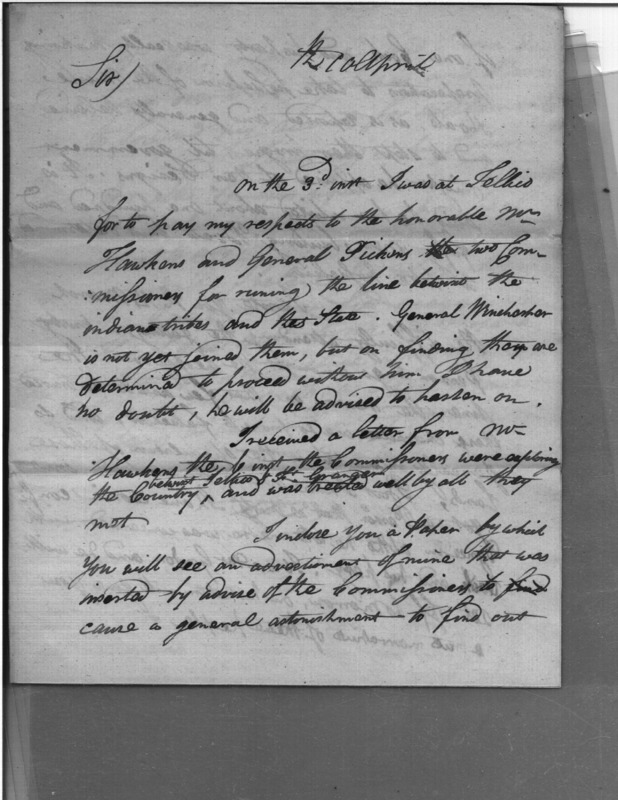 th 10 April
Sir /
on the 3.d inst I was at Tellico
for to pay my respects to the honorable Mr
Hawkens and General Pickens the two Com-
:missioners for runing the line betwixt the
indiana tribes and this State. General Winchester
is not yet joined them, but on finding they are
determined to proceed without him, I have
no doubt, he will be advised to hasten on.
I received a letter from Mr
Hawkens the 6 inst the Commissioners were exploring
betwixt Tellico & Ft. Granger
the Country ^ and was treated well by all they
met I inclose You a Paper by which
You will see an advertisment of mine that was
inserted by advise of the Commissioners to find
cause a general astonishment to find out